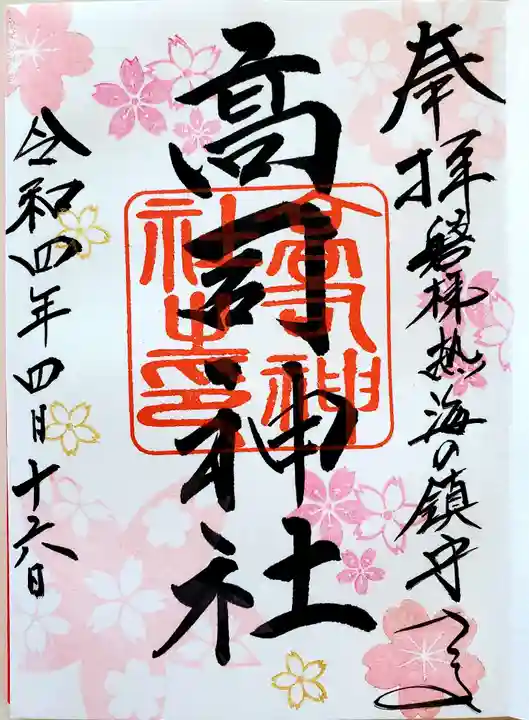 奉拝 磐梯熱海の鎮守
高司神社
令和四年四月十六日